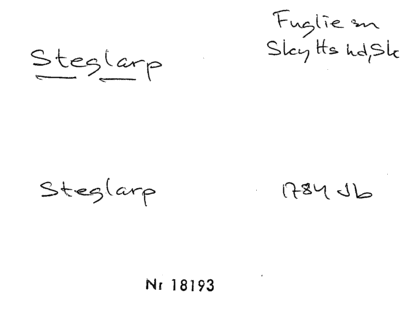 Steglarp
Fuglie sn
Skytts hd, Sk
Steglarp
1784 Jb
Nr 18193